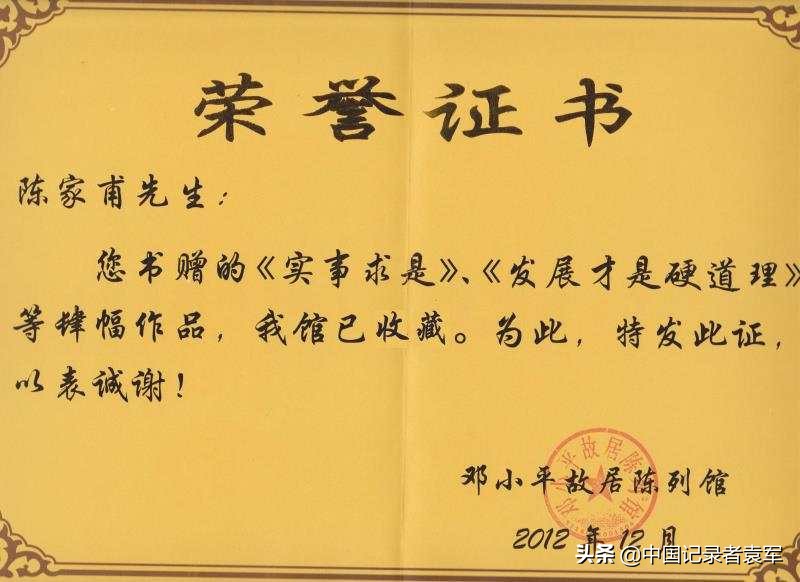 荣誉证书
陈家甫先生：
您书赠的《实事求是》、《发展才是硬道理》
等肆幅作品，我馆已收藏。为此，特发此证，
以表诚谢！
邓小平故居陈列馆
邓小平故居陈列馆
2012年12月
头条 @中国记录者袁军